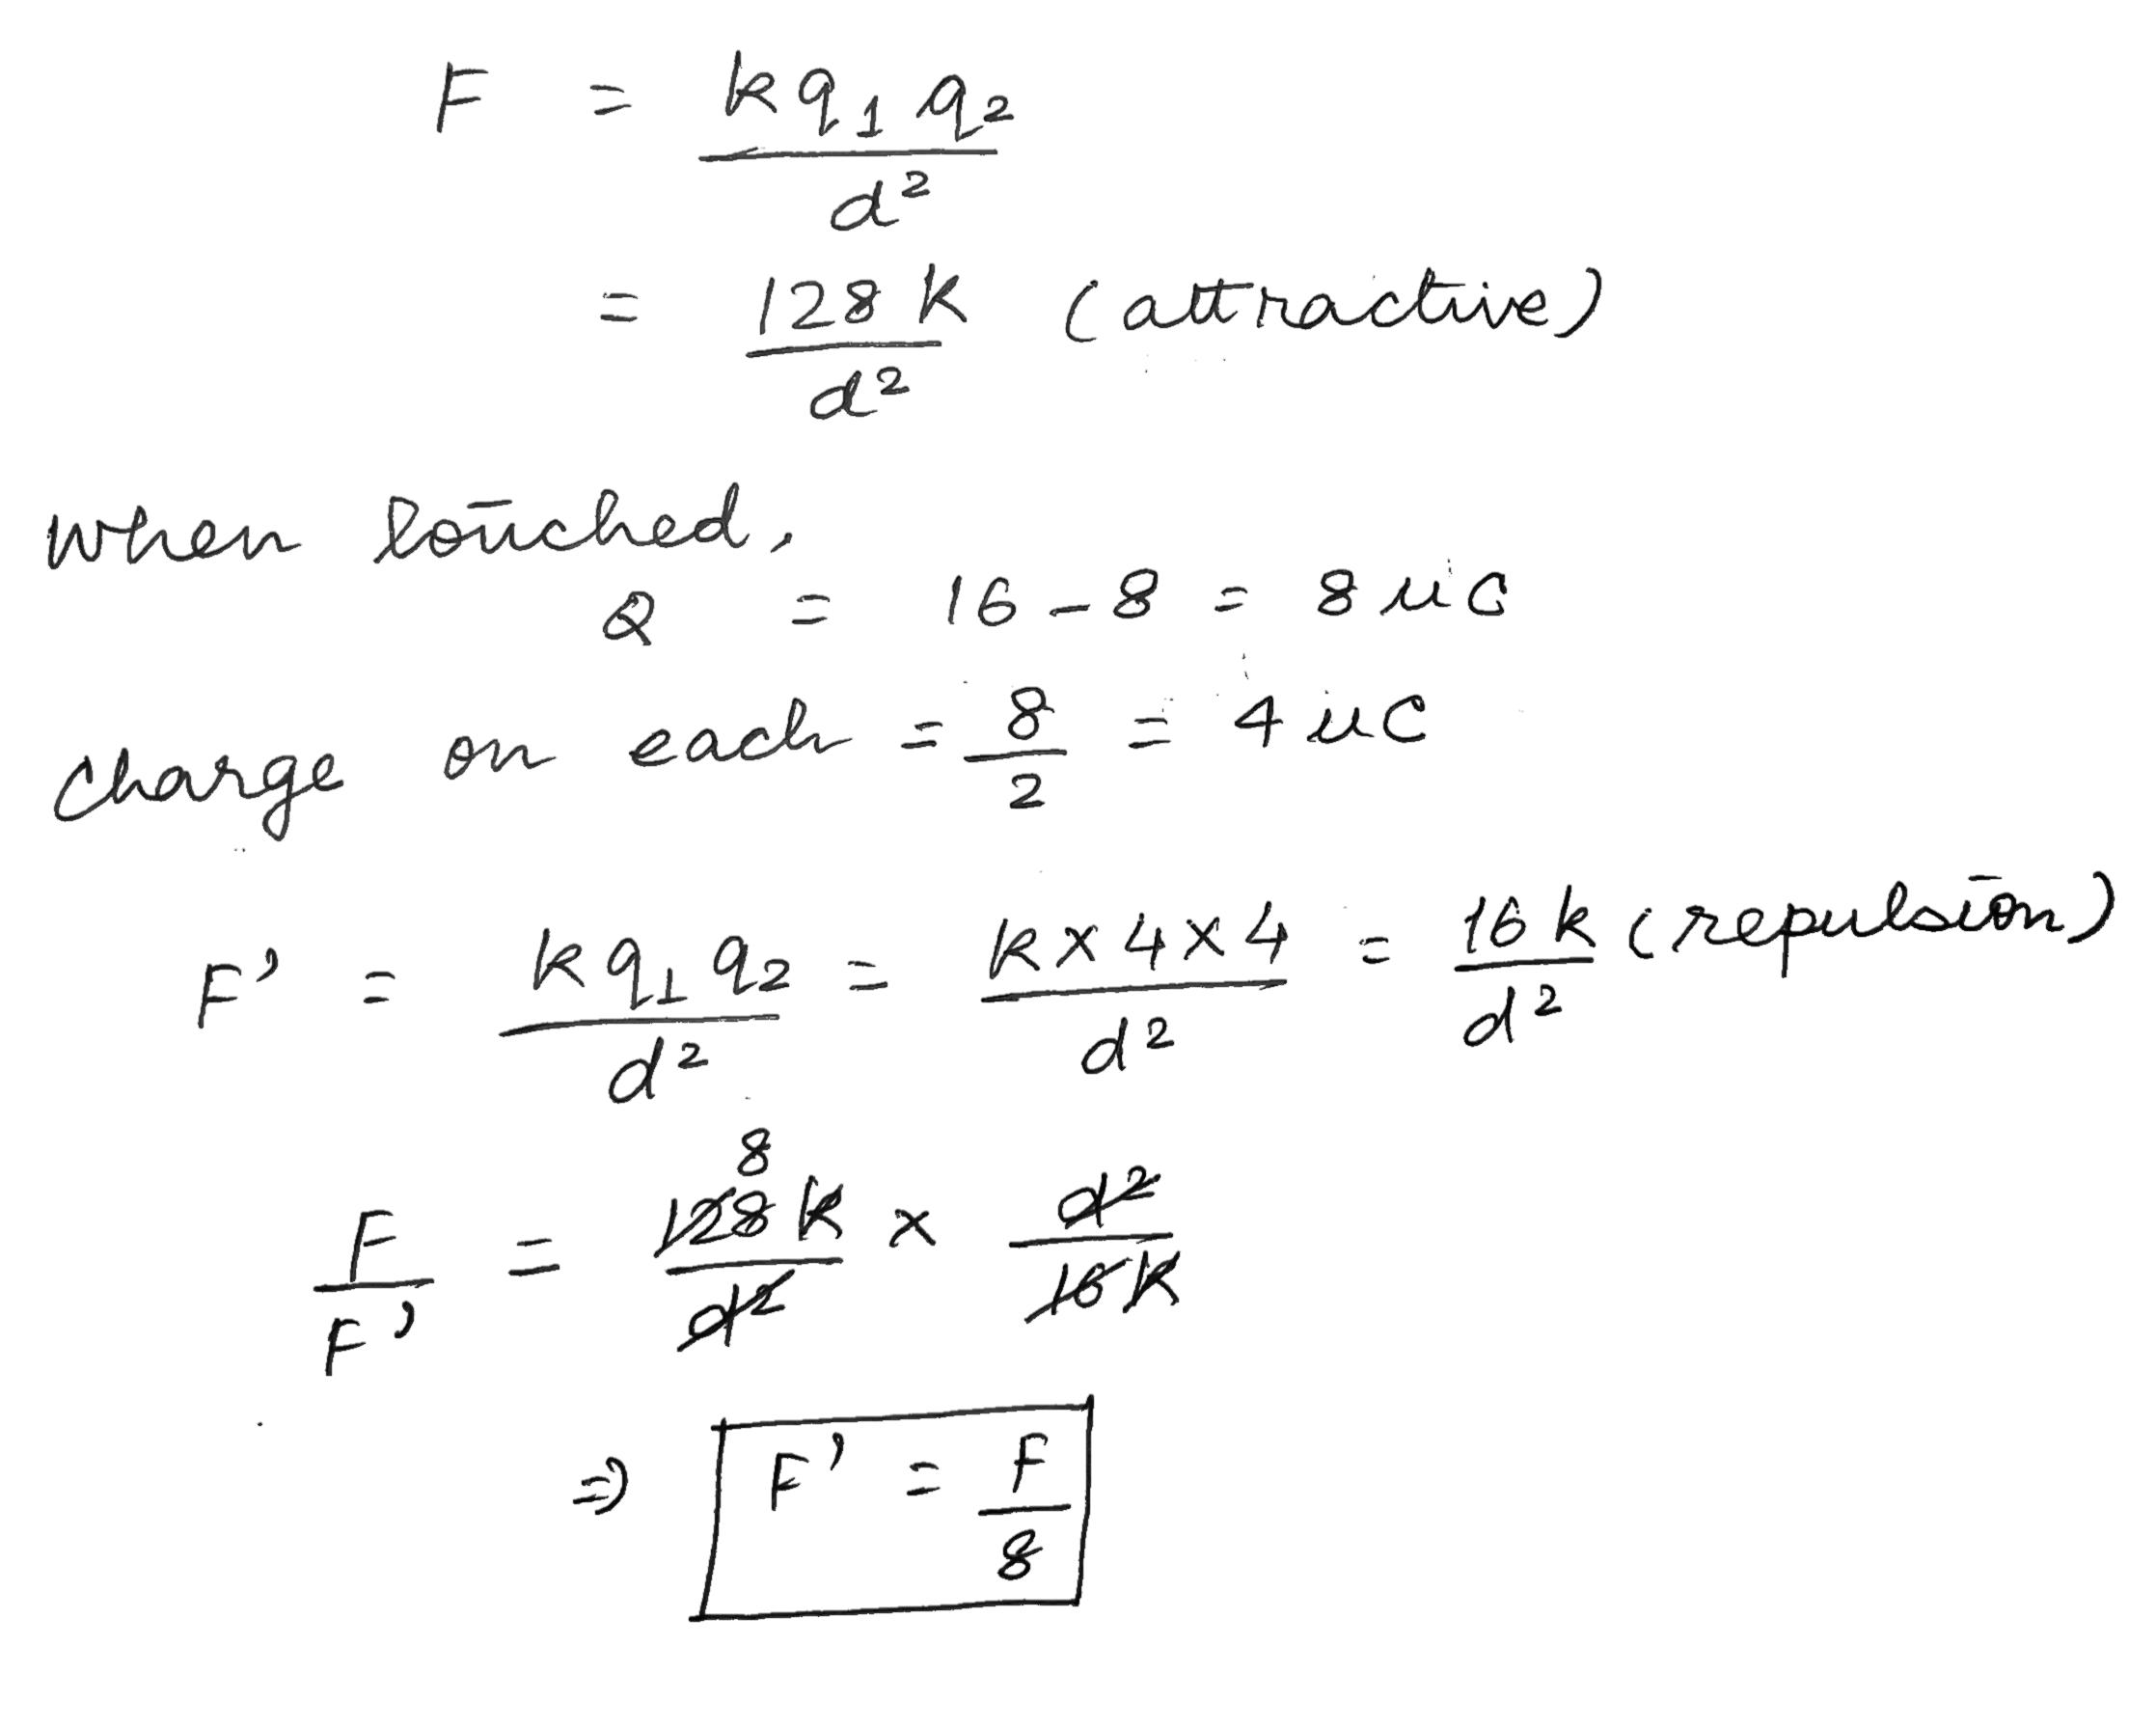 F = kq₁q₂/d²
= 128k/d² (attractive)
When touched,
Q = 16 - 8 = 8 μC
Charge on each = 8/2 = 4 μC
F' = kq₁q₂/d² = k×4×4/d² = 16k/d² (repulsion)
8
F/F' = 128k/d² × d²/16k
⇒ F' = F/8